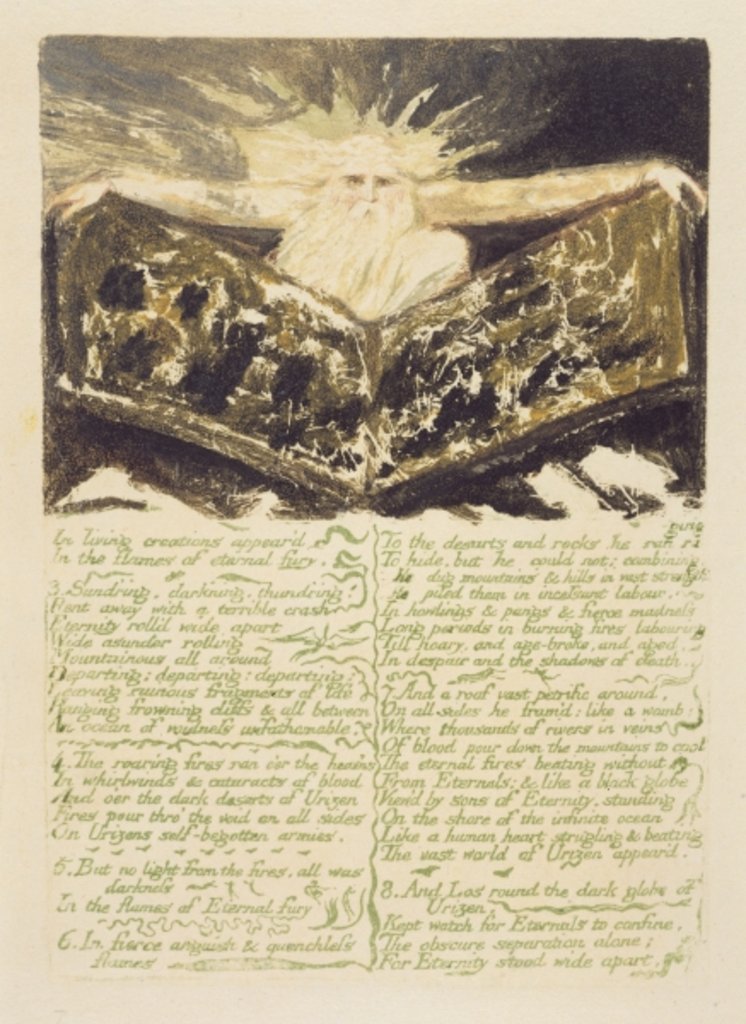 In living creations appear'd
In the flames of eternal fury.
3. Sundring, darkning, thundring!
Rent away with a terrible crash
Eternity roll'd wide apart
Wide asunder rolling
Mountainous all around
Departing; departing; departing:
Leaving ruinous fragments of life
Hanging frowning cliffs & all between
An ocean of voidness unfathomable.
4. The roaring fires ran o'er the heavens
In whirlwinds & cataracts of blood
And o'er the dark desarts of Urizen
Fires pour thro' the void on all sides
On Urizens self-begotten armies.
5. But no light from the fires, all was
darkness
In the flames of Eternal fury
6. In fierce anguish & quenchless
flames
To the desarts and rocks he ran raging
To hide, but he could not: combining
He dug mountains & hills in vast strength
He piled them in incessant labour,
In howlings & pangs & fierce madness
Long periods in burning fires labouring
Till hoary, and age-broke, and aged,
In despair and the shadows of death.
7. And a roof vast petrific around,
On all sides he fram'd: like a womb;
Where thousands of rivers in veins
Of blood pour down the mountains to cool
The eternal fires beating without
From Eternals; & like a black globe
View'd by sons of Eternity, standing
On the shore of the infinite ocean
Like a human heart strugling & beating
The vast world of Urizen appear'd.
8. And Los round the dark globe of
Urizen,
Kept watch for Eternals to confine,
The obscure separation alone;
For Eternity stood wide apart,